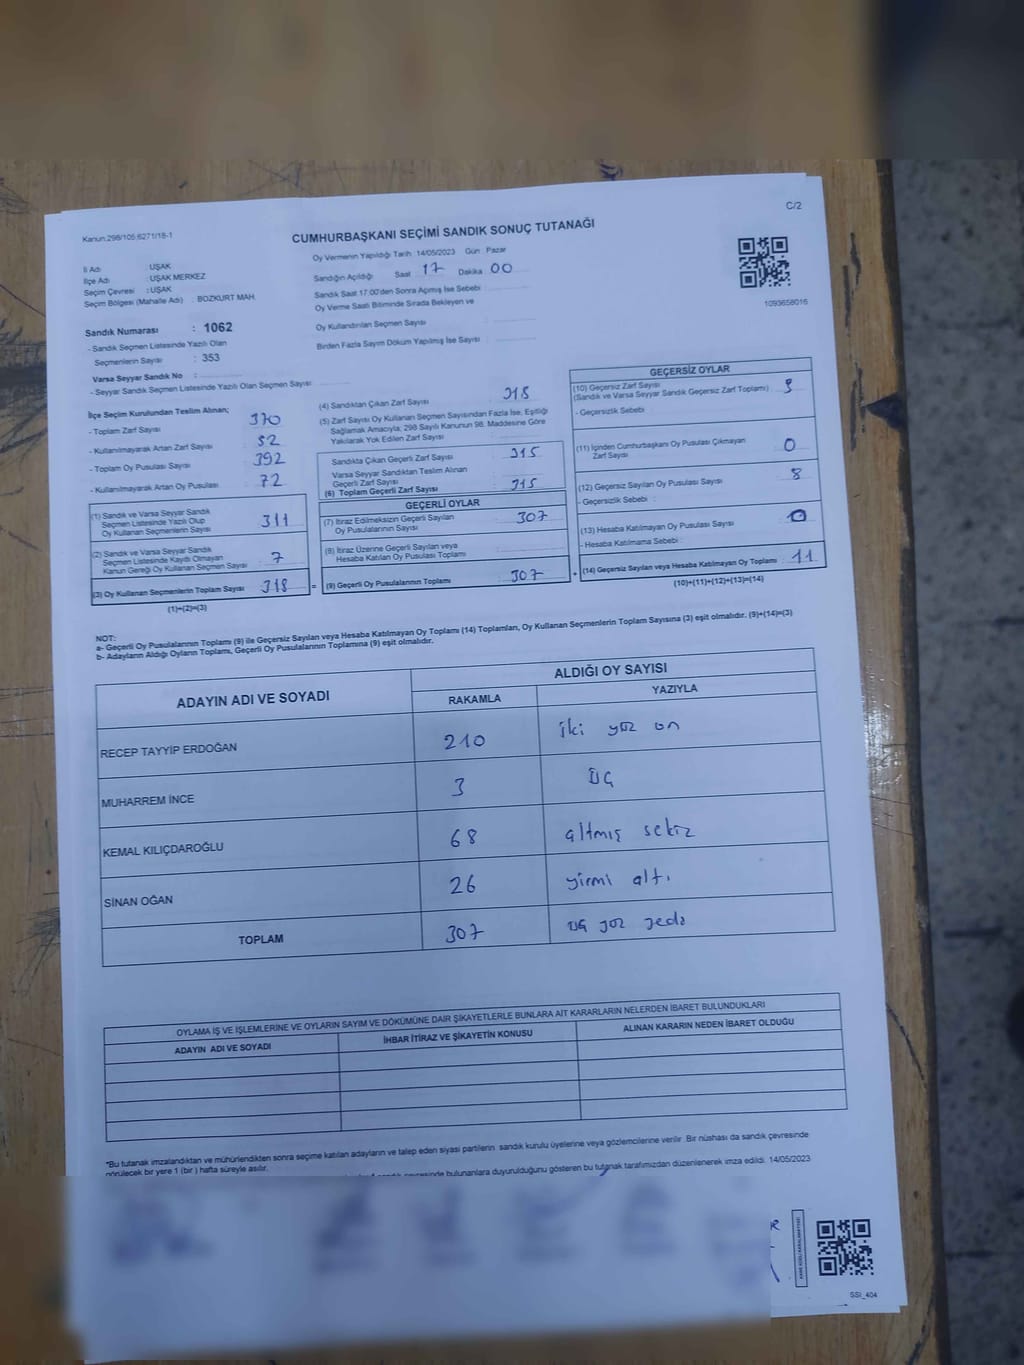 C/2
Kanun:298/105;6271/18-1
CUMHURBAŞKANI SEÇİMİ SANDIK SONUÇ TUTANAĞI
İl Adı : UŞAK
İlçe Adı : UŞAK MERKEZ
Seçim Çevresi : UŞAK
Seçim Bölgesi (Mahalle Adı) : BOZKURT MAH.
Sandık Numarası : 1062
- Sandık Seçmen Listesinde Yazılı Olan
Seçmenlerin Sayısı : 353
Varsa Seyyar Sandık No :
- Seyyar Sandık Seçmen Listesinde Yazılı Olan Seçmen Sayısı
Oy Vermenin Yapıldığı Tarih :14/05/2023 Gün Pazar
Sandığın Açıldığı Saat 17 Dakika 00
Sandık Saat 17:00'den Sonra Açılmış İse Sebebi :
Oy Verme Saati Bitiminde Sırada Bekleyen ve
Oy Kullandırılan Seçmen Sayısı :
Birden Fazla Sayım Döküm Yapılmış İse Sayısı :
1093658016
İlçe Seçim Kurulundan Teslim Alınan;
- Toplam Zarf Sayısı 370
- Kullanılmayarak Artan Zarf Sayısı 52
- Toplam Oy Pusulası Sayısı 392
- Kullanılmayarak Artan Oy Pusulası 72
(1) Sandık ve Varsa Seyyar Sandık
Seçmen Listesinde Yazılı Olup
Oy Kullanan Seçmenlerin Sayısı 311
(2) Sandık ve Varsa Seyyar Sandık
Seçmen Listesinde Kayıtlı Olmayan
Kanun Gereği Oy Kullanan Seçmen Sayısı 7
(3) Oy Kullanan Seçmenlerin Toplam Sayısı 318 =
(1)+(2)=(3)
(4) Sandıktan Çıkan Zarf Sayısı 318
(5) Zarf Sayısı Oy Kullanan Seçmen Sayısından Fazla İse, Eşitliği
Sağlamak Amacıyla; 298 Sayılı Kanunun 98. Maddesine Göre
Yakılarak Yok Edilen Zarf Sayısı :
Sandıkta Çıkan Geçerli Zarf Sayısı 315
Varsa Seyyar Sandıktan Teslim Alınan
Geçerli Zarf Sayısı
(6) Toplam Geçerli Zarf Sayısı 315
GEÇERLİ OYLAR
(7) İtiraz Edilmeksizin Geçerli Sayılan
Oy Pusulalarının Sayısı 307
(8) İtiraz Üzerine Geçerli Sayılan veya
Hesaba Katılan Oy Pusulası Toplamı
(9) Geçerli Oy Pusulalarının Toplamı 307 +
GEÇERSİZ OYLAR
(10) Geçersiz Zarf Sayısı
(Sandık ve Varsa Seyyar Sandık Geçersiz Zarf Toplamı) 3
- Geçersizlik Sebebi
(11) İçinden Cumhurbaşkanı Oy Pusulası Çıkmayan
Zarf Sayısı 0
(12) Geçersiz Sayılan Oy Pusulası Sayısı 8
- Geçersizlik Sebebi :
(13) Hesaba Katılmayan Oy Pusulası Sayısı 0
- Hesaba Katılmama Sebebi :
(14) Geçersiz Sayılan veya Hesaba Katılmayan Oy Toplamı : 11
(10)+(11)+(12)+(13)=(14)
NOT:
a- Geçerli Oy Pusulalarının Toplamı (9) ile Geçersiz Sayılan veya Hesaba Katılmayan Oy Toplamı (14) Toplamları, Oy Kullanan Seçmenlerin Toplam Sayısına (3) eşit olmalıdır. (9)+(14)=(3)
b- Adayların Aldığı Oyların Toplamı, Geçerli Oy Pusulalarının Toplamına (9) eşit olmalıdır.
ADAYIN ADI VE SOYADI ALDIĞI OY SAYISI
RAKAMLA YAZIYLA
RECEP TAYYİP ERDOĞAN 210 iki yüz on
MUHARREM İNCE 3 üç
KEMAL KILIÇDAROĞLU 68 altmış sekiz
SİNAN OĞAN 26 yirmi altı
TOPLAM 307 üç yüz yedi
OYLAMA İŞ VE İŞLEMLERİNE VE OYLARIN SAYIM VE DÖKÜMÜNE DAİR ŞİKAYETLERLE BUNLARA AİT KARARLARIN NELERDEN İBARET BULUNDUKLARI
ADAYIN ADI VE SOYADI İHBAR İTİRAZ VE ŞİKAYETİN KONUSU ALINAN KARARIN NEDEN İBARET OLDUĞU
*Bu tutanak imzalandıktan ve mühürlendikten sonra seçime katılan adayların ve talep eden siyasi partilerin sandık kurulu üyelerine veya gözlemcilerine verilir. Bir nüshası da sandık çevresinde
görülecek bir yere 1 (bir) hafta süreyle asılır.
sandık çevresinde bulunanlara duyurulduğunu gösteren bu tutanak tarafımızdan düzenlenerek imza edildi. 14/05/2023
SSI_404